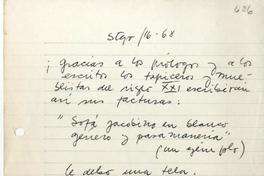 626
Stgo /16-68
¡gracias a los prólogos y a los
escritos los tapiceros y mue-
blistas del siglo XXI escribirán
así sus facturas:
"Sofá jacobino en blanco
género y pasamanería"
(un ejemplo)
le debo una tela.